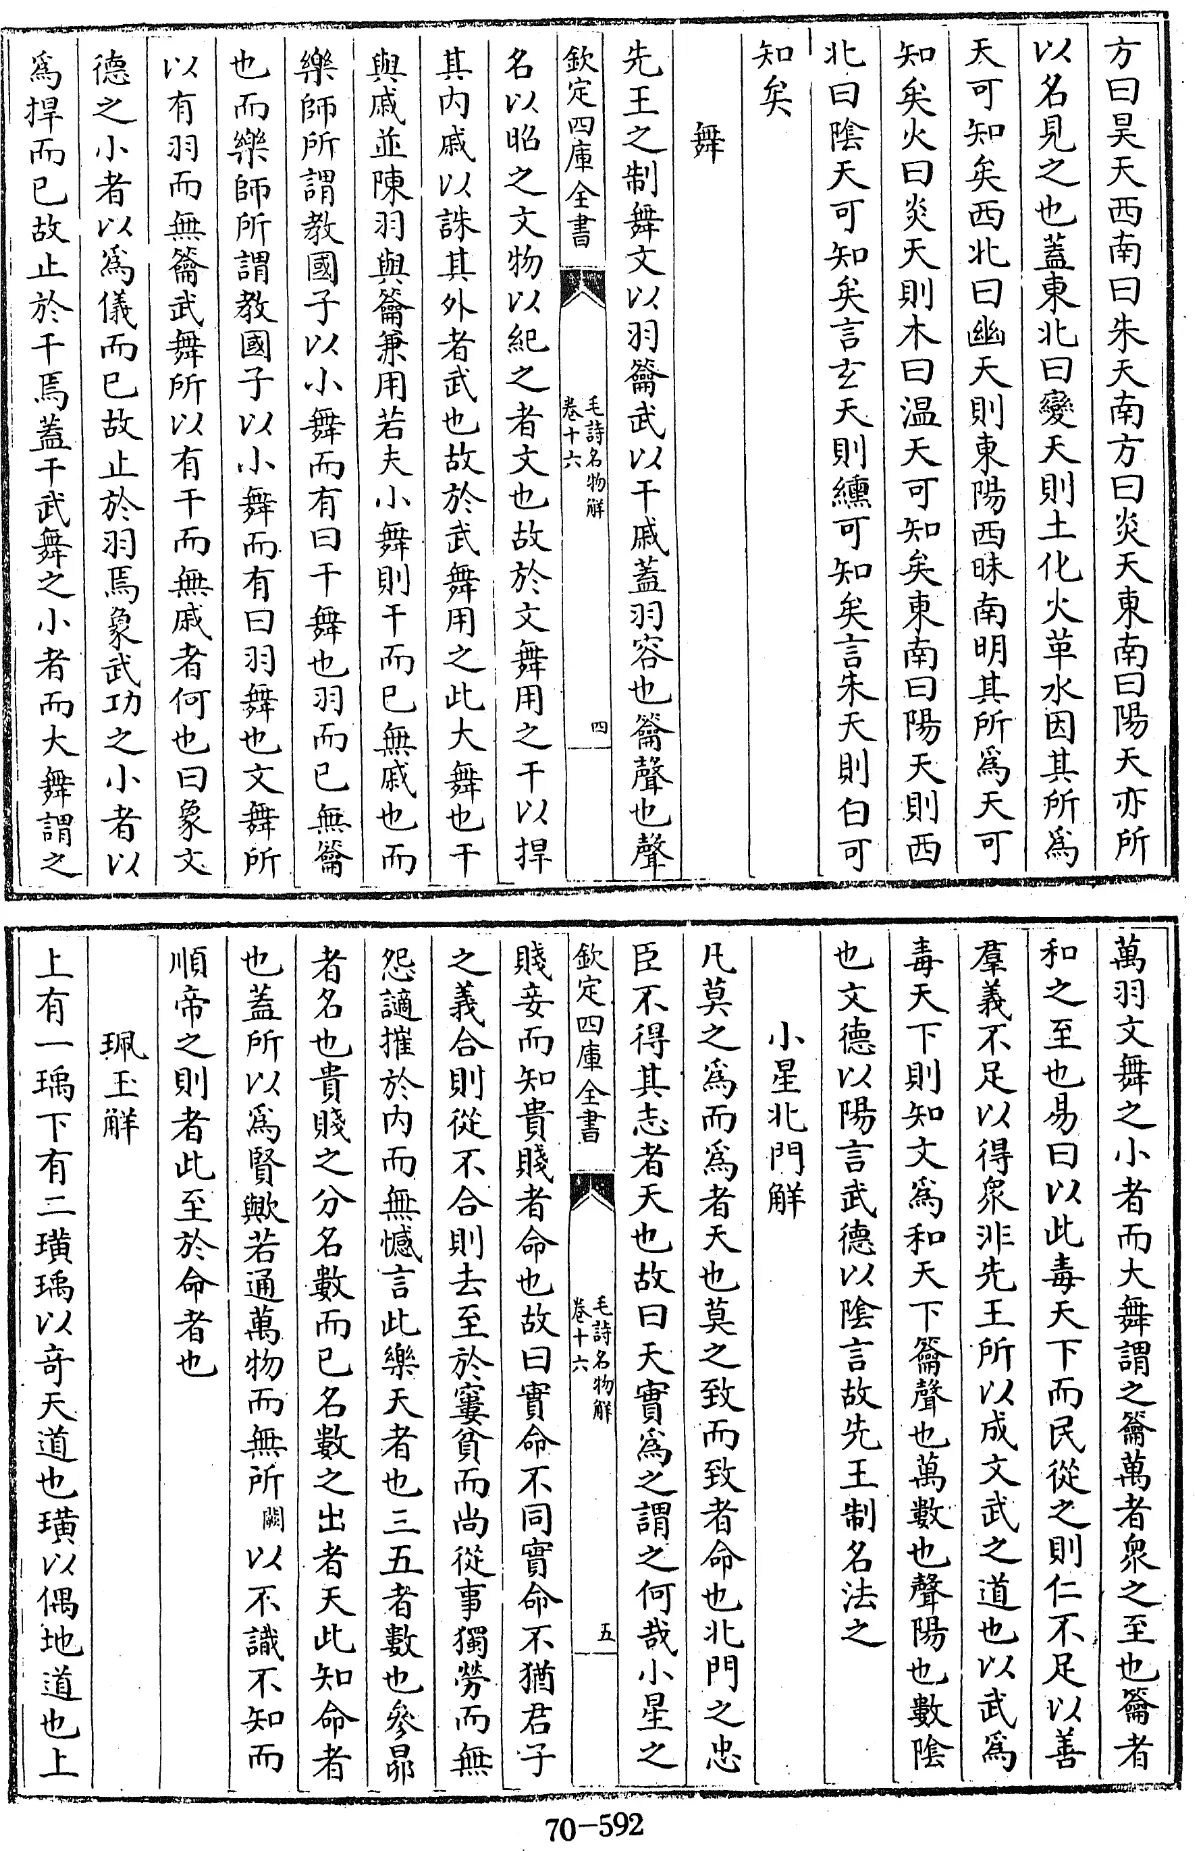 方曰昊天西南曰朱天南方曰炎天東南曰陽天亦所
以名見之也蓋東北曰變天則土化火革水因其所爲
天可知矣西北曰幽天則東陽西昧南明其所爲天可
知矣火曰炎天則木曰温天可知矣東南曰陽天則西
北曰陰天可知矣言玄天則纁可知矣言朱天則白可
知矣
舞
先王之制舞文以羽籥武以干戚蓋羽容也籥聲也聲
欽定四庫全書
毛詩名物解
卷十六
四
名以昭之文物以紀之者文也故於文舞用之干以捍
其内戚以誅其外者武也故於武舞用之此大舞也干
與戚並陳羽與籥兼用若夫小舞則干而已無戚也而
樂師所謂教國子以小舞而有曰干舞也羽而已無籥
也而樂師所謂教國子以小舞而有曰羽舞也文舞所
以有羽而無籥武舞所以有干而無戚者何也曰象文
德之小者以爲儀而已故止於羽焉象武功之小者以
爲捍而已故止於干焉蓋干武舞之小者而大舞謂之
萬羽文舞之小者而大舞謂之籥萬者衆之至也籥者
和之至也易曰以此毒天下而民從之則仁不足以善
羣義不足以得衆非先王所以成文武之道也以武爲
毒天下則知文爲和天下籥聲也萬數也聲陽也數陰
也文德以陽言武德以陰言故先王制名法之
小星北門解
凡莫之爲而爲者天也莫之致而致者命也北門之忠
臣不得其志者天也故曰天實爲之謂之何哉小星之
欽定四庫全書
毛詩名物解
卷十六
五
賤妾而知貴賤者命也故曰實命不同實命不猶君子
之義合則從不合則去至於窶貧而尚從事獨勞而無
怨讁摧於内而無憾言此樂天者也三五者數也參昴
者名也貴賤之分名數而已名數之出者天此知命者
也蓋所以爲賢歟若通萬物而無所闕以不識不知而
順帝之則者此至於命者也
珮玉解
上有一瑀下有二璜瑀以竒天道也璜以偶地道也上
70-592